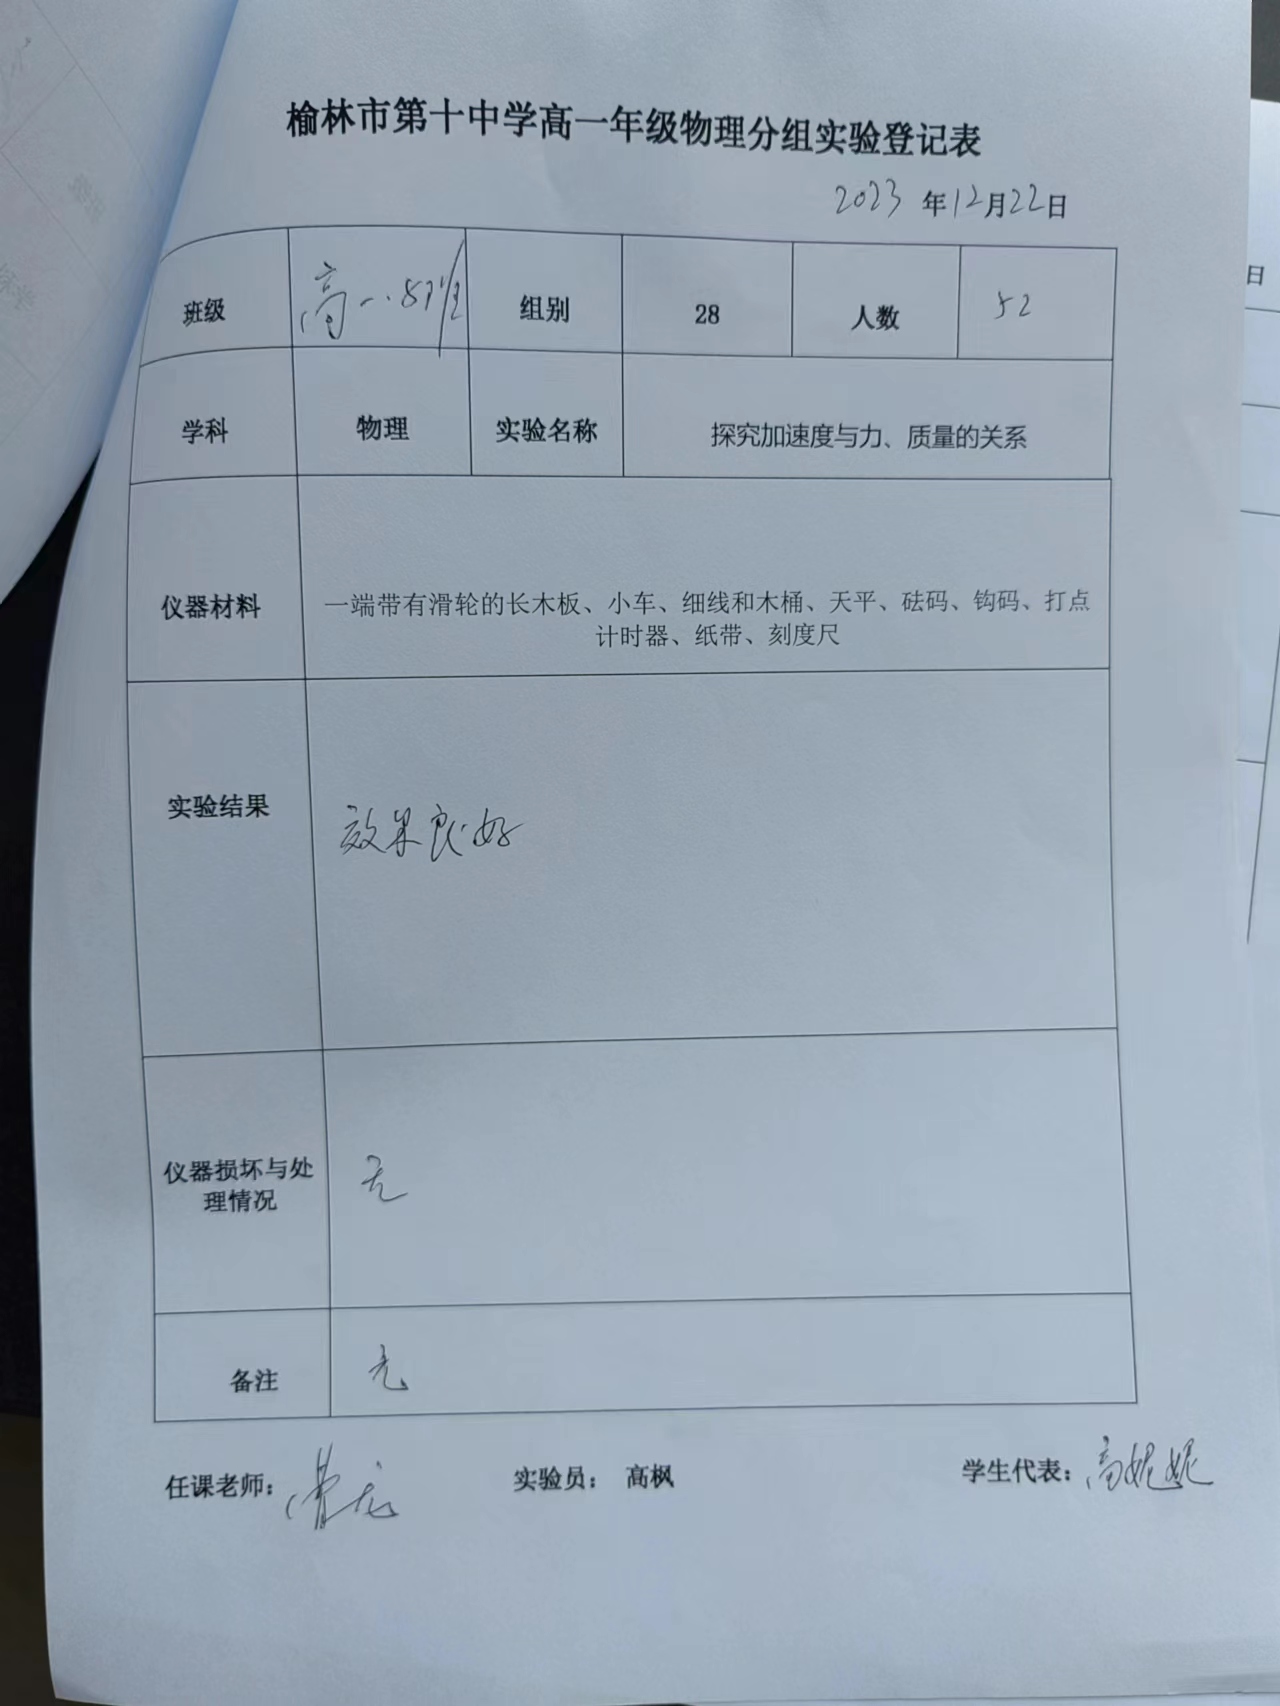 榆林市第十中学高一年级物理分组实验登记表
2023 年12月22日
班级 高一.8班 组别 28 人数 52
学科 物理 实验名称 探究加速度与力、质量的关系
仪器材料 一端带有滑轮的长木板、小车、细线和木桶、天平、砝码、钩码、打点
计时器、纸带、刻度尺
实验结果 效果良好
仪器损坏与处
理情况 无
备注 无
任课老师： 实验员： 高枫 学生代表：高妮妮
日